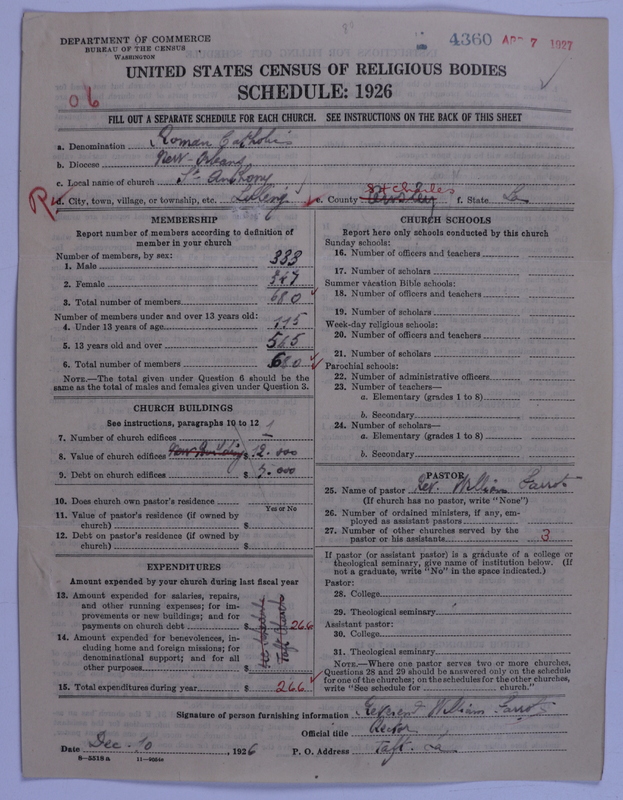 DEPARTMENT OF COMMERCE
BUREAU OF THE CENSUS
WASHINGTON
4360 APR 7 1927
UNITED STATES CENSUS OF RELIGIOUS BODIES
SCHEDULE: 1926
06
FILL OUT A SEPARATE SCHEDULE FOR EACH CHURCH. SEE INSTRUCTIONS ON THE BACK OF THIS SHEET
a. Denomination Roman Catholic
b. Diocese New-Orleans
c. Local name of church St Anthony
d. City, town, village, or township, etc. e. County St Charles f. State La
MEMBERSHIP
Report number of members according to definition of
member in your church
Number of members, by sex:
1. Male 333
2. Female 347
3. Total number of members 680
Number of members under and over 13 years old:
4. Under 13 years of age 115
5. 13 years old and over 565
6. Total number of members 680
NOTE.—The total given under Question 6 should be the
same as the total of males and females given under Question 3.
CHURCH BUILDINGS
See instructions, paragraphs 10 to 12
7. Number of church edifices 1
8. Value of church edifices New Building $ 12.000
9. Debt on church edifices $ 5.000
10. Does church own pastor's residence
Yes or No
11. Value of pastor's residence (if owned by
church) $
12. Debt on pastor's residence (if owned by
church) $
EXPENDITURES
Amount expended by your church during last fiscal year
13. Amount expended for salaries, repairs,
and other running expenses; for im-
provements or new buildings; and for
payments on church debt $ 266
14. Amount expended for benevolences, in-
cluding home and foreign missions; for
denominational support; and for all
other purposes $
Taft Church
15. Total expenditures during year $ 266
CHURCH SCHOOLS
Report here only schools conducted by this church
Sunday schools:
16. Number of officers and teachers
17. Number of scholars
Summer vacation Bible schools:
18. Number of officers and teachers
19. Number of scholars
Week-day religious schools:
20. Number of officers and teachers
21. Number of scholars
Parochial schools:
22. Number of administrative officers
23. Number of teachers—
a. Elementary (grades 1 to 8)
b. Secondary
24. Number of scholars—
a. Elementary (grades 1 to 8)
b. Secondary
PASTOR
25. Name of pastor Rev. William
(If church has no pastor, write "None")
26. Number of ordained ministers, if any, em-
ployed as assistant pastors
27. Number of other churches served by the
pastor or his assistants 3
If pastor (or assistant pastor) is a graduate of a college or
theological seminary, give name of institution below. (If
not a graduate, write "No" in the space indicated.)
Pastor:
28. College
29. Theological seminary
Assistant pastor:
30. College
31. Theological seminary
NOTE.—Where one pastor serves two or more churches,
Questions 28 and 29 should be answered only on the schedule
for one of the churches; on the schedules for the other churches,
write "See schedule for church."
Signature of person furnishing information Reverend William
Official title Rector
Date Dec-10, 1926 P. O. Address Taft-La
8—5518a 11—9004a